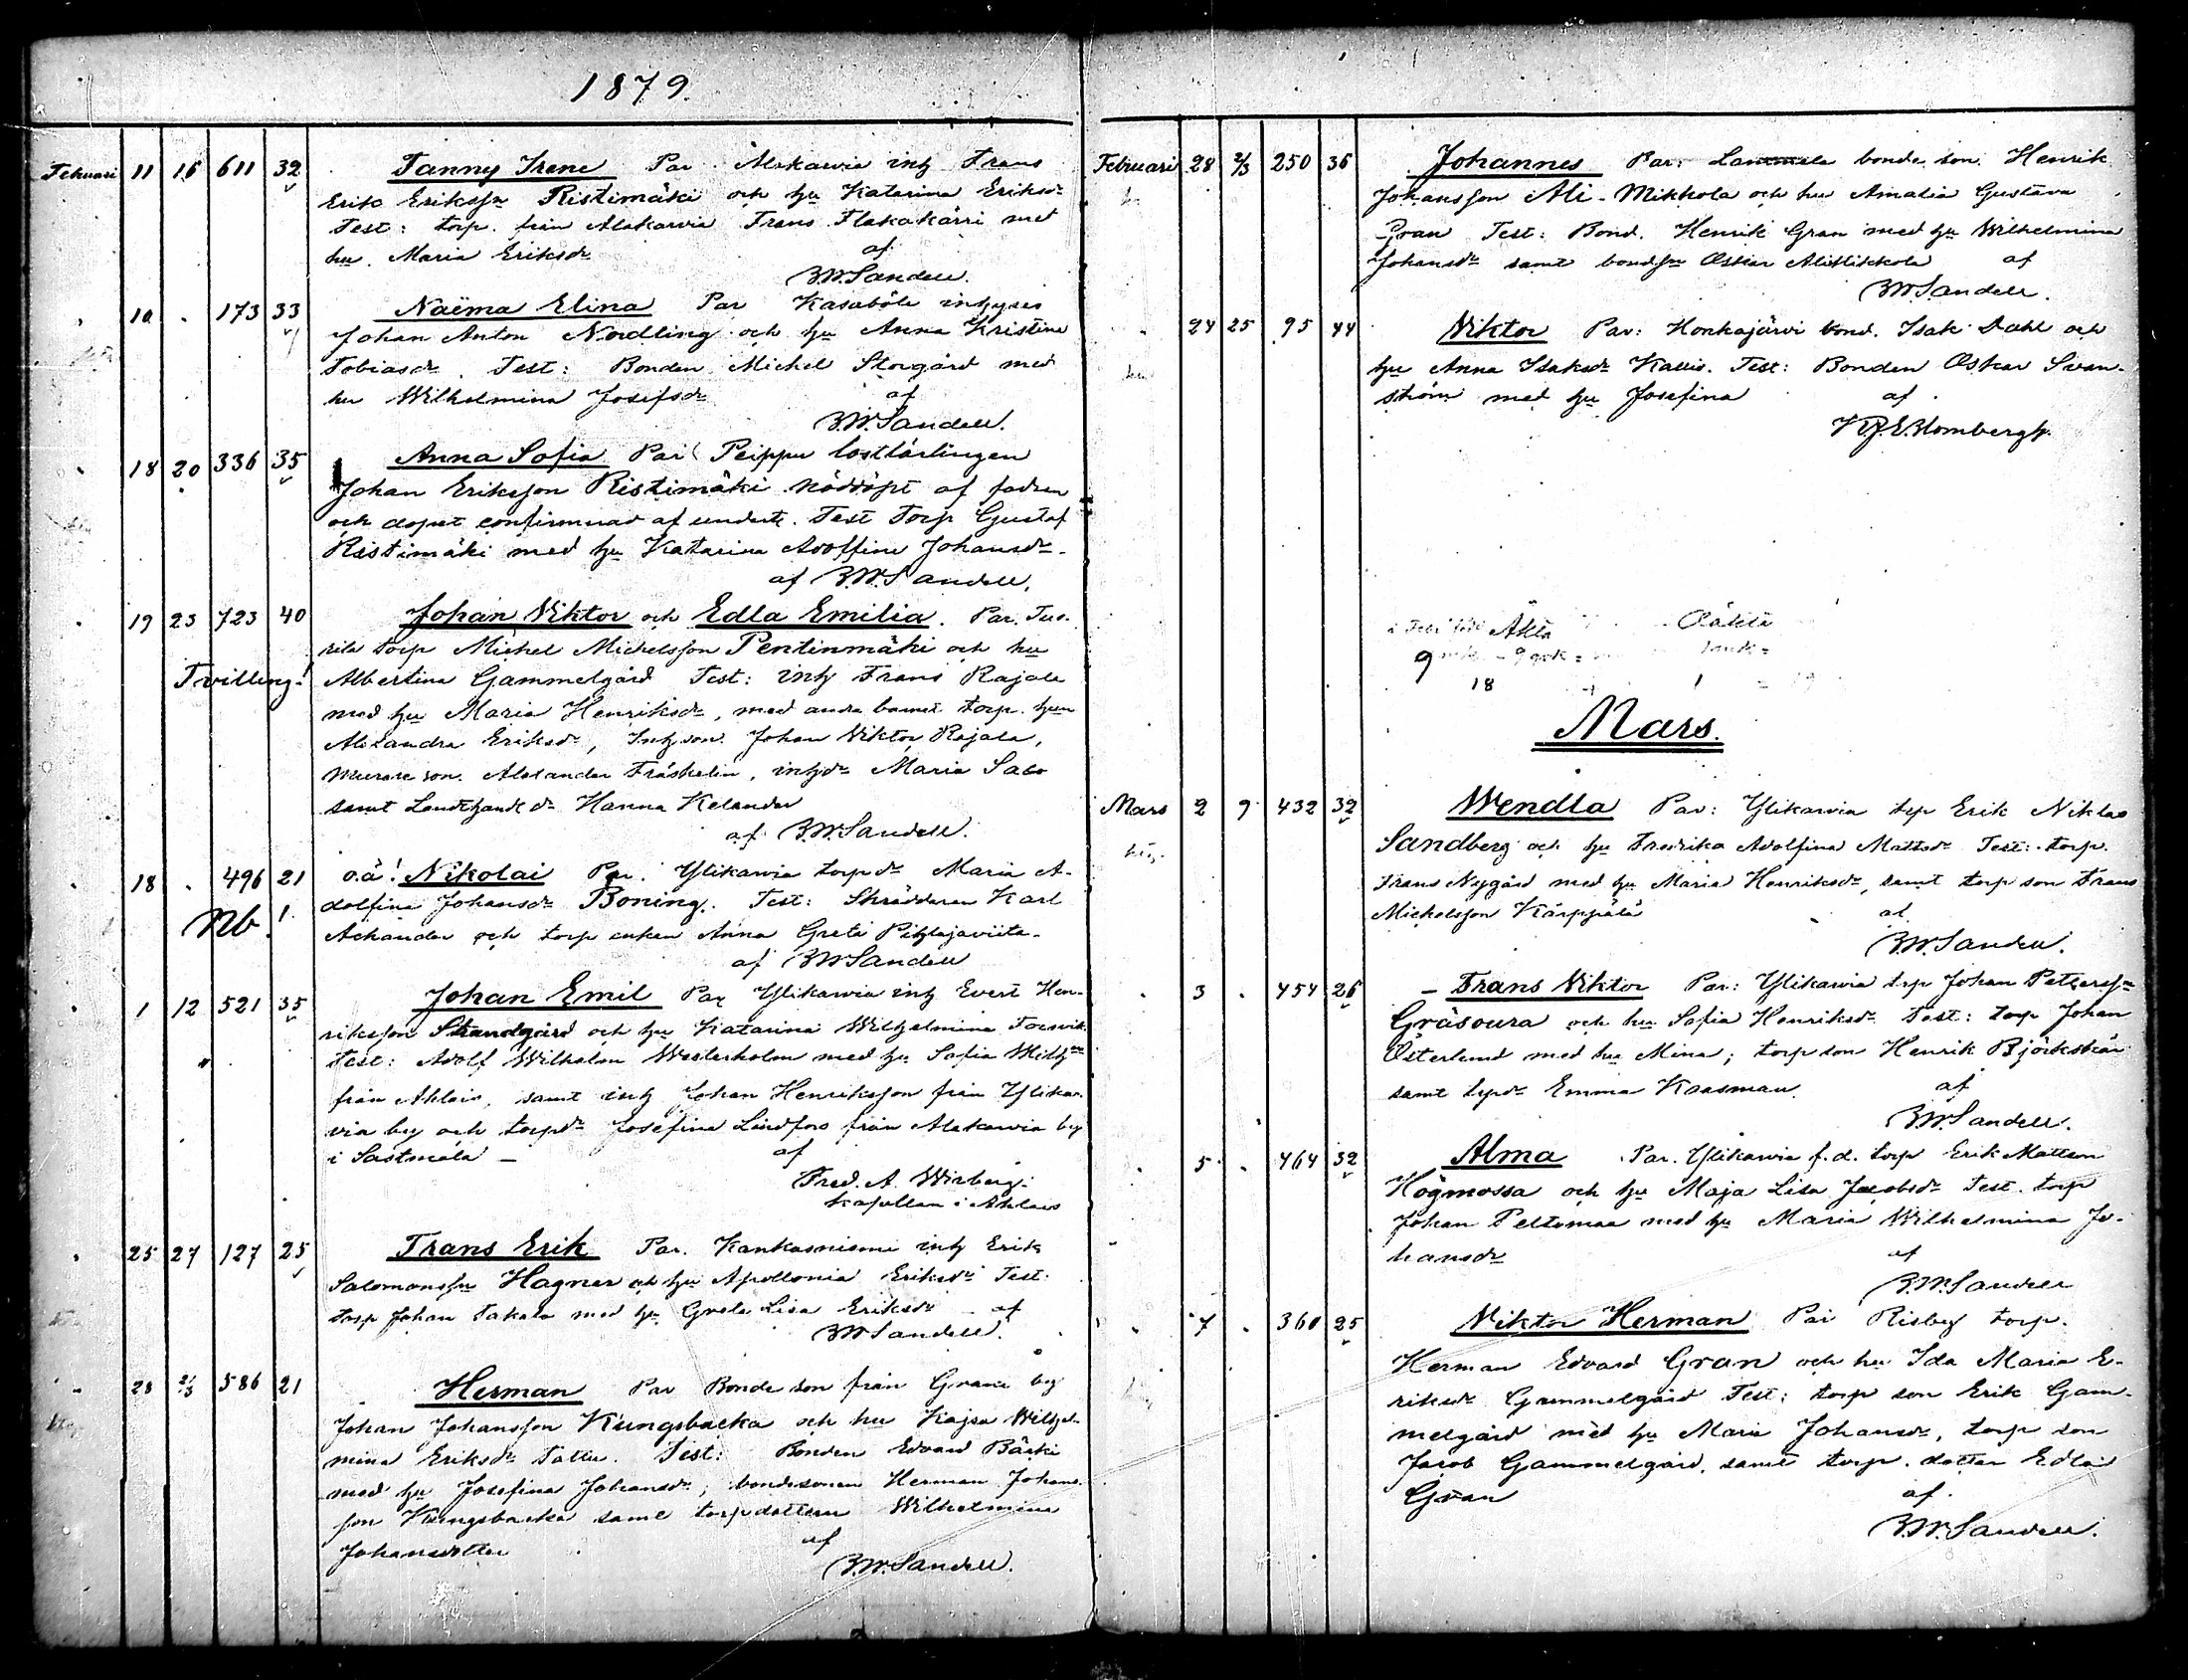 1879.
Febuari 11 16 611 32 Fanny Irene Par Alakarvia inh Frans
Erik Eriksson Ristimäki och hu Katarina Eriksdr
Test: torp. från Alakarvia Frans Flakakärri med
hu. Maria Eriksdr af
B.W.Sandell.
10 . 173 33 Naëma Elina Par Kasaböle inhyses
Johan Anton Nordling och hu Anna Kristina
Tobiasdr. Test: Bonden Michel Storgård med
hu Wilhelmina Josefsdr af
B.W.Sandell.
18 20 336 35 Anna Sofia Par Peippu lostlärlingen
Johan Eriksson Ristimäki nöddöpt af fadren
och dopet confirmerad af undert. Test Torp Gustaf
Ristimäki med hu Katarina Adolfina Johansdr.
af B.W.Sandell.
19 23 723 40 Johan Viktor och Edla Emilia. Par. Tuo-
rila torp Michel Michelsson Pentinmäki och hu
Tvilling! Albertina Gammelgård Test: inh Frans Rajala
med hu Maria Henriksdr, med andra barnet torp. hun
Alexandra Eriksdr, Inh son Johan Viktor Rajala,
Murare son. Alexander Fräskelin, inhdr Maria Salo
samt Landthandl dr Hanna Kelander
af B.W.Sandell.
18 . 496 21 o.ä! Nikolai Par. Ylikarvia torp dr Maria A-
Nb! dolfina Johansdr Boning. Test: Skräddaren Karl
Achander och torp enkan Anna Greta Pihlajaviita.
af B.W.Sandell
1 12 521 35 Johan Emil Par Ylikarvia inh Evert Hen-
riksson Strandgård och hu Katarina Wilhelmina Forsvik
Test: Adolf Wilhelm Westerholm med hu Sofia Milh
från Ahlais, samt inh Johan Henriksson från Ylikar-
via by och torpdr Josefina Lindfors från Alakarvia by
i Sastmola — af
Fred. A. Wirberg.
kapellan i Ahlais
25 27 127 25 Frans Erik Par. Kankasniemi inh Erik
Salomonsson Hagner och hu Apollonia Eriksdr Test:
torp Johan Takala med hu Greta Lisa Eriksdr — af
B.W.Sandell.
28 2/3 586 21 Herman Par Bonde son från Grane by
Johan Johansson Kungsbacka och hu Kajsa Wilhel-
mina Eriksdr Tattu. Test: Bonden Edvard Bäcki
med hu Josefina Johansdr; bondesonen Herman Johans-
son Kungsbacka samt torpdottern Wilhelmina
Johansdotter af
B.W.Sandell.
Februari 28 2/3 250 36 Johannes Par: bonde son. Henrik
Johansson Ali-Mikkola och hu Amalia Gustava
Gran Test: Bond. Henrik Gran med hu Wilhelmina
Johansdr samt bondsn Oskar Alimikkola af
B.W.Sandell.
24 25 95 44 Viktor Par: Honkajärvi bond. Isak Dahl och
hu Anna Isaksdr Kallis. Test: Bonden Oskar Svan-
ström med hu Josefina af
K.J.E.Blombergh.
Äkta Oäkta
9
18 1
Mars.
Mars 2 9 432 32 Wendla Par: Ylikarvia torp Erik Niklas
Sandberg och hu Fredrika Adolfina Mattsdr Test: torp.
Frans Nygård med hu Maria Henriksdr, samt torp son Frans
Michelsson Kärppjälä af
B.W.Sandell.
3 . 454 26 — Frans Viktor Par: Ylikarvia torp Johan Pettersson
Gräsoura och hu Sofia Henriksdr Test: torp Johan
Österlund med hu Mina; torp son Henrik Björkskär
samt torpdr Emma Krasman. af
B.W.Sandell.
5 . 464 32 Alma Par. Ylikarvia f.d. torp Erik Mattsson
Högmossa och hu Maja Lisa Jacobsdr Test. torp
Johan Peltomaa med hu Maria Wilhelmina Jo-
hansdr af
B.W.Sandell
7 . 360 25 Viktor Herman Par Risby torp.
Herman Edvard Gran och hu Ida Maria E-
riksdr Gammelgård Test: torp son Erik Gam-
melgård med hu Maria Johansdr, torp son
Jacob Gammelgård, samt torp. dotter Edla
Gran af.
B.W.Sandell.